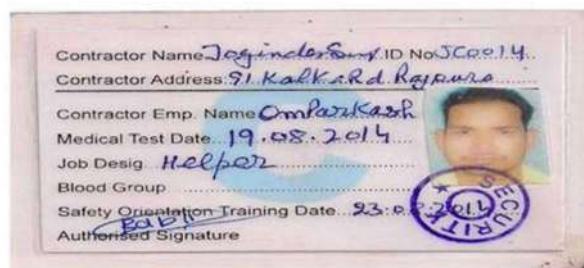 Contractor Name Joginder ID No JC0014
Contractor Address 91 Kalka Rd Rajpura
Contractor Emp. Name OmParKash
Medical Test Date 19.08.2014
Job Desig. Helper
Blood Group
Safety Orientation Training Date 23.0
Authorised Signature
SECURITY